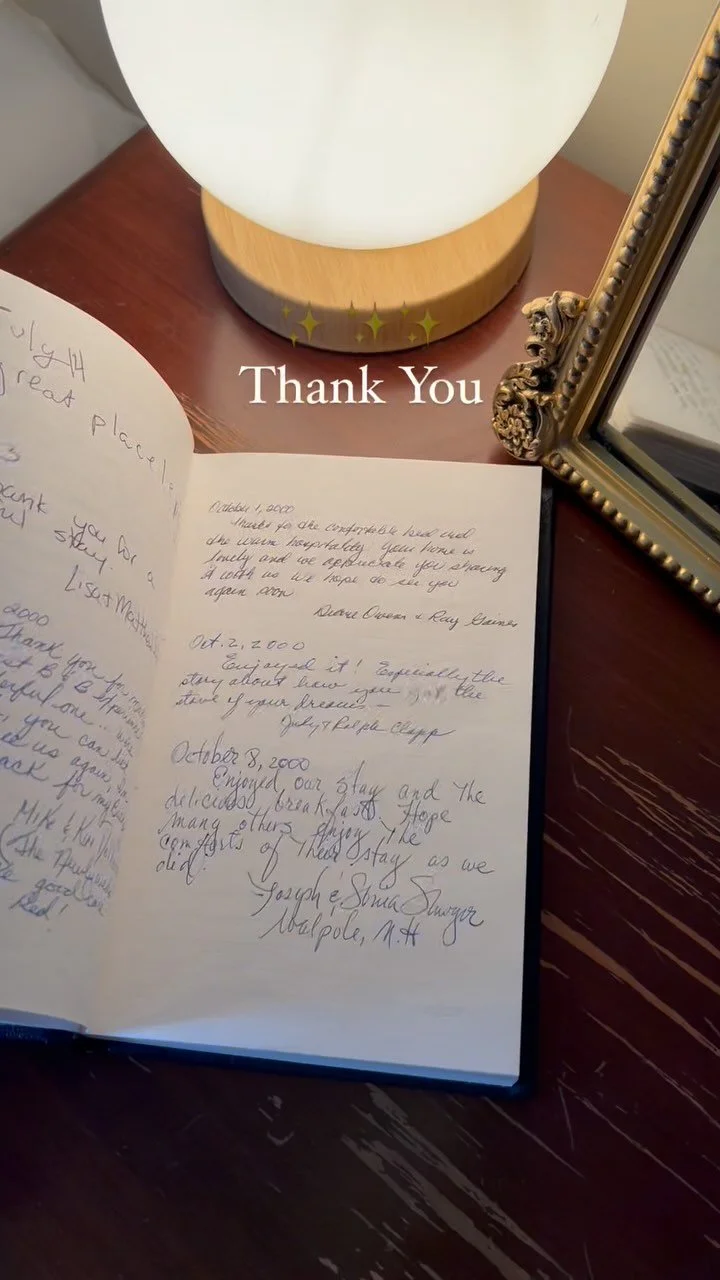 Thank You
July 14
great place
thank you for a
stay.
Lisa & Matthew
2000
Thank you for
B & B
one..
you can
us again,
back for my
Mike &
(the
good
Red!
October 1, 2000
Thanks for the comfortable bed and
the warm hospitality. Your home is
lovely and we appreciate you sharing
it with us we hope to see you
again soon
Diane Owens & Ray Gaines
Oct. 2, 2000
Enjoyed it! Especially the
story about how you got the
stove of your dreams –
Judy & Ralph Clapp
October 8, 2000
Enjoyed our stay and the
delicious breakfast. Hope
many others enjoy the
comforts of their stay as we
did.
Joseph & Sonia
Walpole, N.H